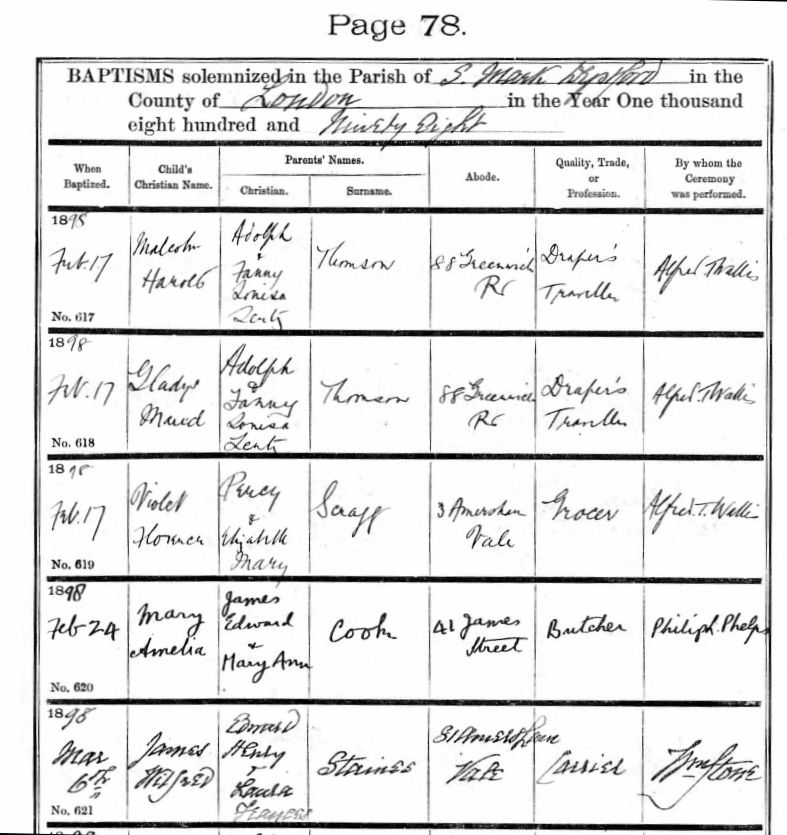 Page 78.
BAPTISMS solemnized in the Parish of S. Mark Deptford in the
County of London in the Year One thousand
eight hundred and Ninety Eight
When Baptized. Child's Christian Name. Parents' Names. Christian. Surname. Abode. Quality, Trade, or Profession. By whom the Ceremony was performed.
1898
Feb. 17
No. 617
Malcolm
Harold
Adolph
&
Fanny
Louisa
Thomson
88 Greenwich
Rd
Draper's
Traveller
Alfred T. Wallis
1898
Feb. 17
No. 618
Gladys
Maud
Adolph
&
Fanny
Louisa
Thomson
88 Greenwich
Rd
Draper's
Traveller
Alfred T. Wallis
1898
Feb. 17
No. 619
Violet
Florence
Percy
&
Elizabeth
Mary
Scragg
3 Amersham
Vale
Grocer
Alfred. T. Wallis
1898
Feb 24
No. 620
Mary
Amelia
James
Edward
&
Mary Ann
Cook
41 James
Street
Butcher
Philip H. Phelps
1898
Mar
6th
No. 621
James
Wilfred
Edward
Henry
&
Laura
Frances
Staines
51 Amersham
Vale
Carrier
Wm Stone